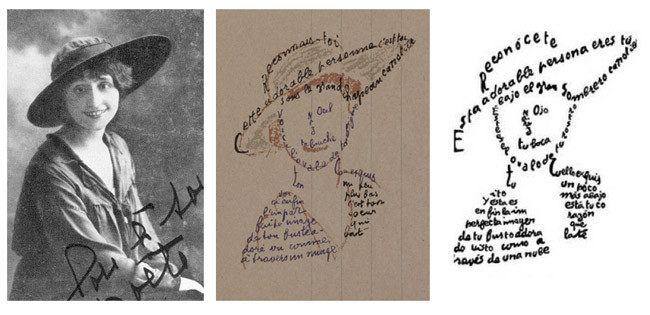 Reconnais-toi
Cette adorable personne c'est toi
Sous le grand chapeau canotier
Œil
Nez
ta bouche
l'ovale de ta
Ton
cou
exquis
ici enfin
l'impar
faite image
de ton buste a
doré vu comme
à travers un nuage
un peu
plus bas
c'est ton
coeur
qui
bat
Reconócete
Esta adorable persona eres tú
Bajo el gran sombrero canotier
Ojo
tu boca
óvalo de tu
Tu
cuello exquis
ito
Y esta es
en fin la im
perfecta imagen
de tu busto adora
do visto como a
través de una nube
un poco
más abajo
está tu co
razón
que
late